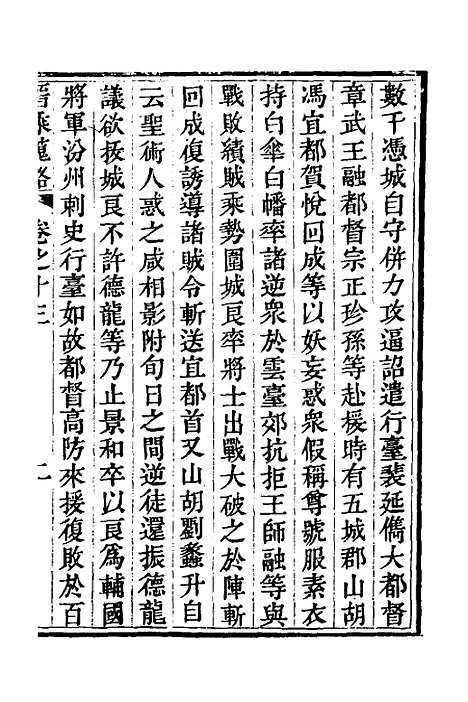 數千憑城自守併力攻逼詔遣行臺裴延儁大都督
章武王融都督宗正珍孫等赴援時有五城郡山胡
馮宜都賀悅回成等以妖妄惑衆假稱尊號服素衣
持白傘白幡率諸逆衆於雲臺郊抗拒王師融等與
戰敗績賊乘勢圍城良率將士出戰大破之於陣斬
回成復誘導諸賊令斬送宜都首又山胡劉蠡升自
云聖術人惑之咸相影附旬日之間逆徒還振德龍
議欲拔城良不許德龍等乃止景和卒以良爲輔國
將軍汾州刺史行臺如故都督高防來援復敗於百
晉乘蒐略 卷之十三 二